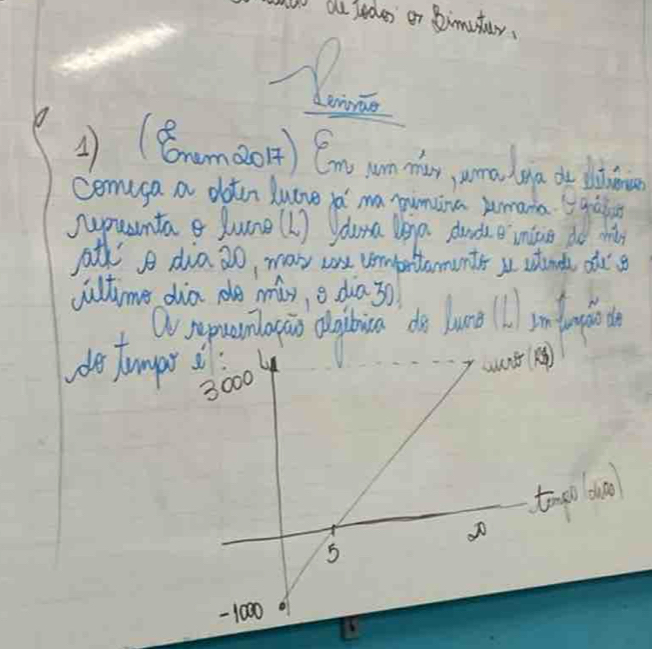 de todos os Bimestres.
Revisão
1) (Enem 2017) Em um mês, uma loja de eletrônicos
começa a obter lucro já na primeira semana. O gráfico
representa o lucro (L) dessa loja desde o início do mês
até o dia 20, mas esse comportamento se estende até o
último dia do mês, o dia 30.
A representação algébrica do lucro (L) em função do
do tempo é:
3000 Lucro (R$)
tempo (dias)
5 20
-1000